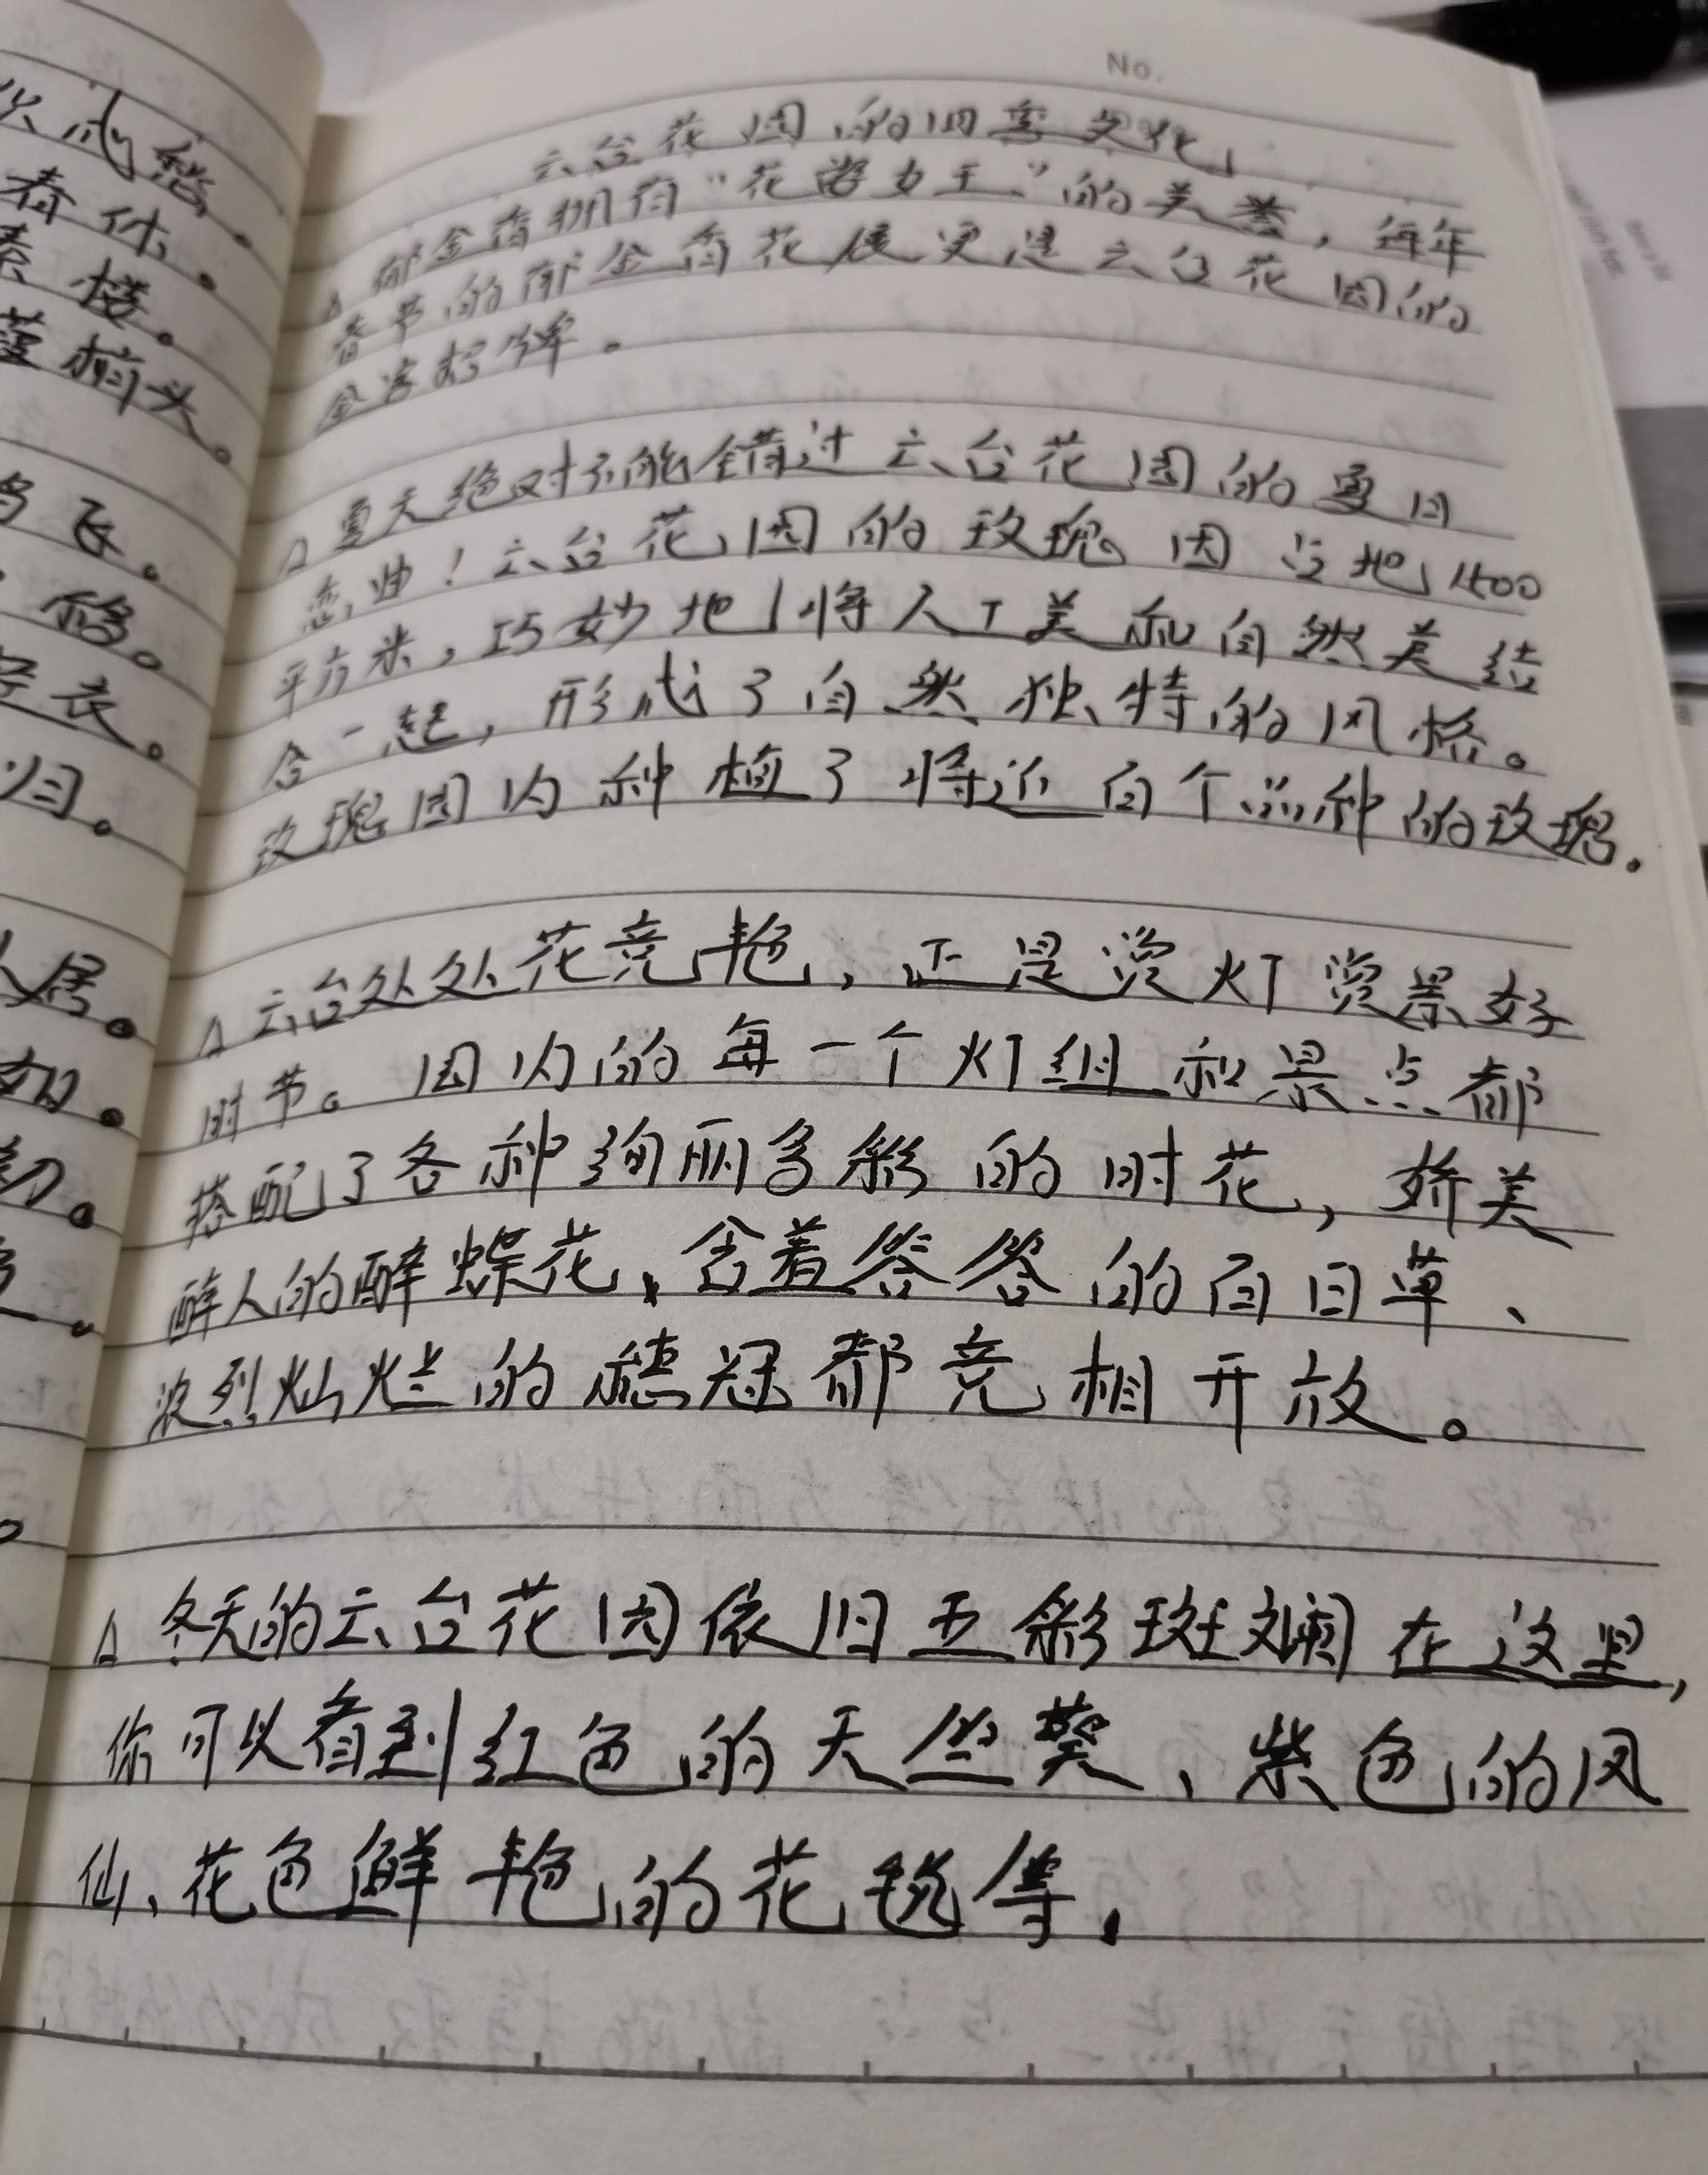 No.
云台花园的四季变化
△ 郁金香拥有“花中女王”的美誉，每年
春节的郁金香花展更是云台花园的
金字招牌。
△ 夏天绝对不能错过云台花园的夏日
恋曲！云台花园的玫瑰园占地1400
平方米，巧妙地将人工美和自然美结
合一起，形成了自然独特的风格。
玫瑰园内种植了将近百个品种的玫瑰.
△ 云台处处花竞艳，正是赏灯赏景好
时节。园内的每一个灯组和景点都
搭配了各种绚丽多彩的时花，娇美
醉人的醉蝶花、含羞答答的百日草、
浓烈灿烂的穗冠都竞相开放。
△ 冬天的云台花园依旧五彩斑斓在这里,
你可以看到红色的天竺葵、紫色的风
仙、花色鲜艳的花毯等.
春休。
楼。
头。
飞。
移。
衣。
归。
居。
如。